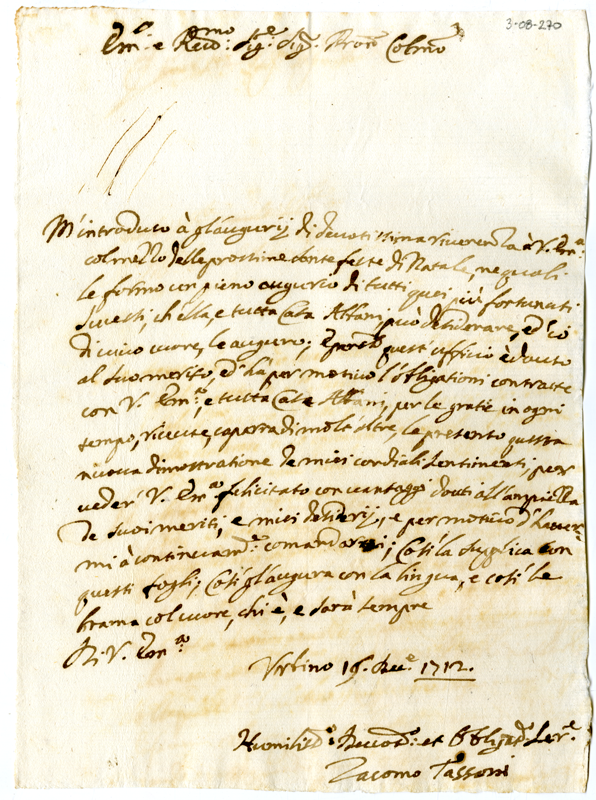 3-08-270
Em.o e Reud.mo Sig.re Sig.r Pron Colmo
M'introduco à gl'augurij di deuotissima riuerenza à V. Em.a
col mezzo delle prossime sante feste di Natale, ne quali
le formo un pieno augurio di tutti quei più fortunati
successi, ch'ella, e tutta Casa Albani può desiderare, ed io
di uiuo cuore, le auguro; E perche quest'uffitio è douto
al suo merito, ed hà per motiuo l'obligationi contratte
con V. Em.a, e tutta Casa Albani, per le gratie in ogni
tempo riceute, caparra di molt'altre, le presento questa
nuoua dimostratione de miei cordiali sentimenti, per
ueder V. Em.a felicitato con uantaggi douti all'ampiezza
de suoi meriti, e miei desiderij, e per motiuo d'hauer
mi à continuam.te comandarmi; Così la supplica con
questi fogli; Così gl'augura con la lingua, e così le
brama col cuore, chi è, e sarà sempre
Di V. Em.a
Urbino 16. Dec.e 1712.
Humiliss.o Deuotis.o et Obligat.o Ser.e
Zacomo Tassoni